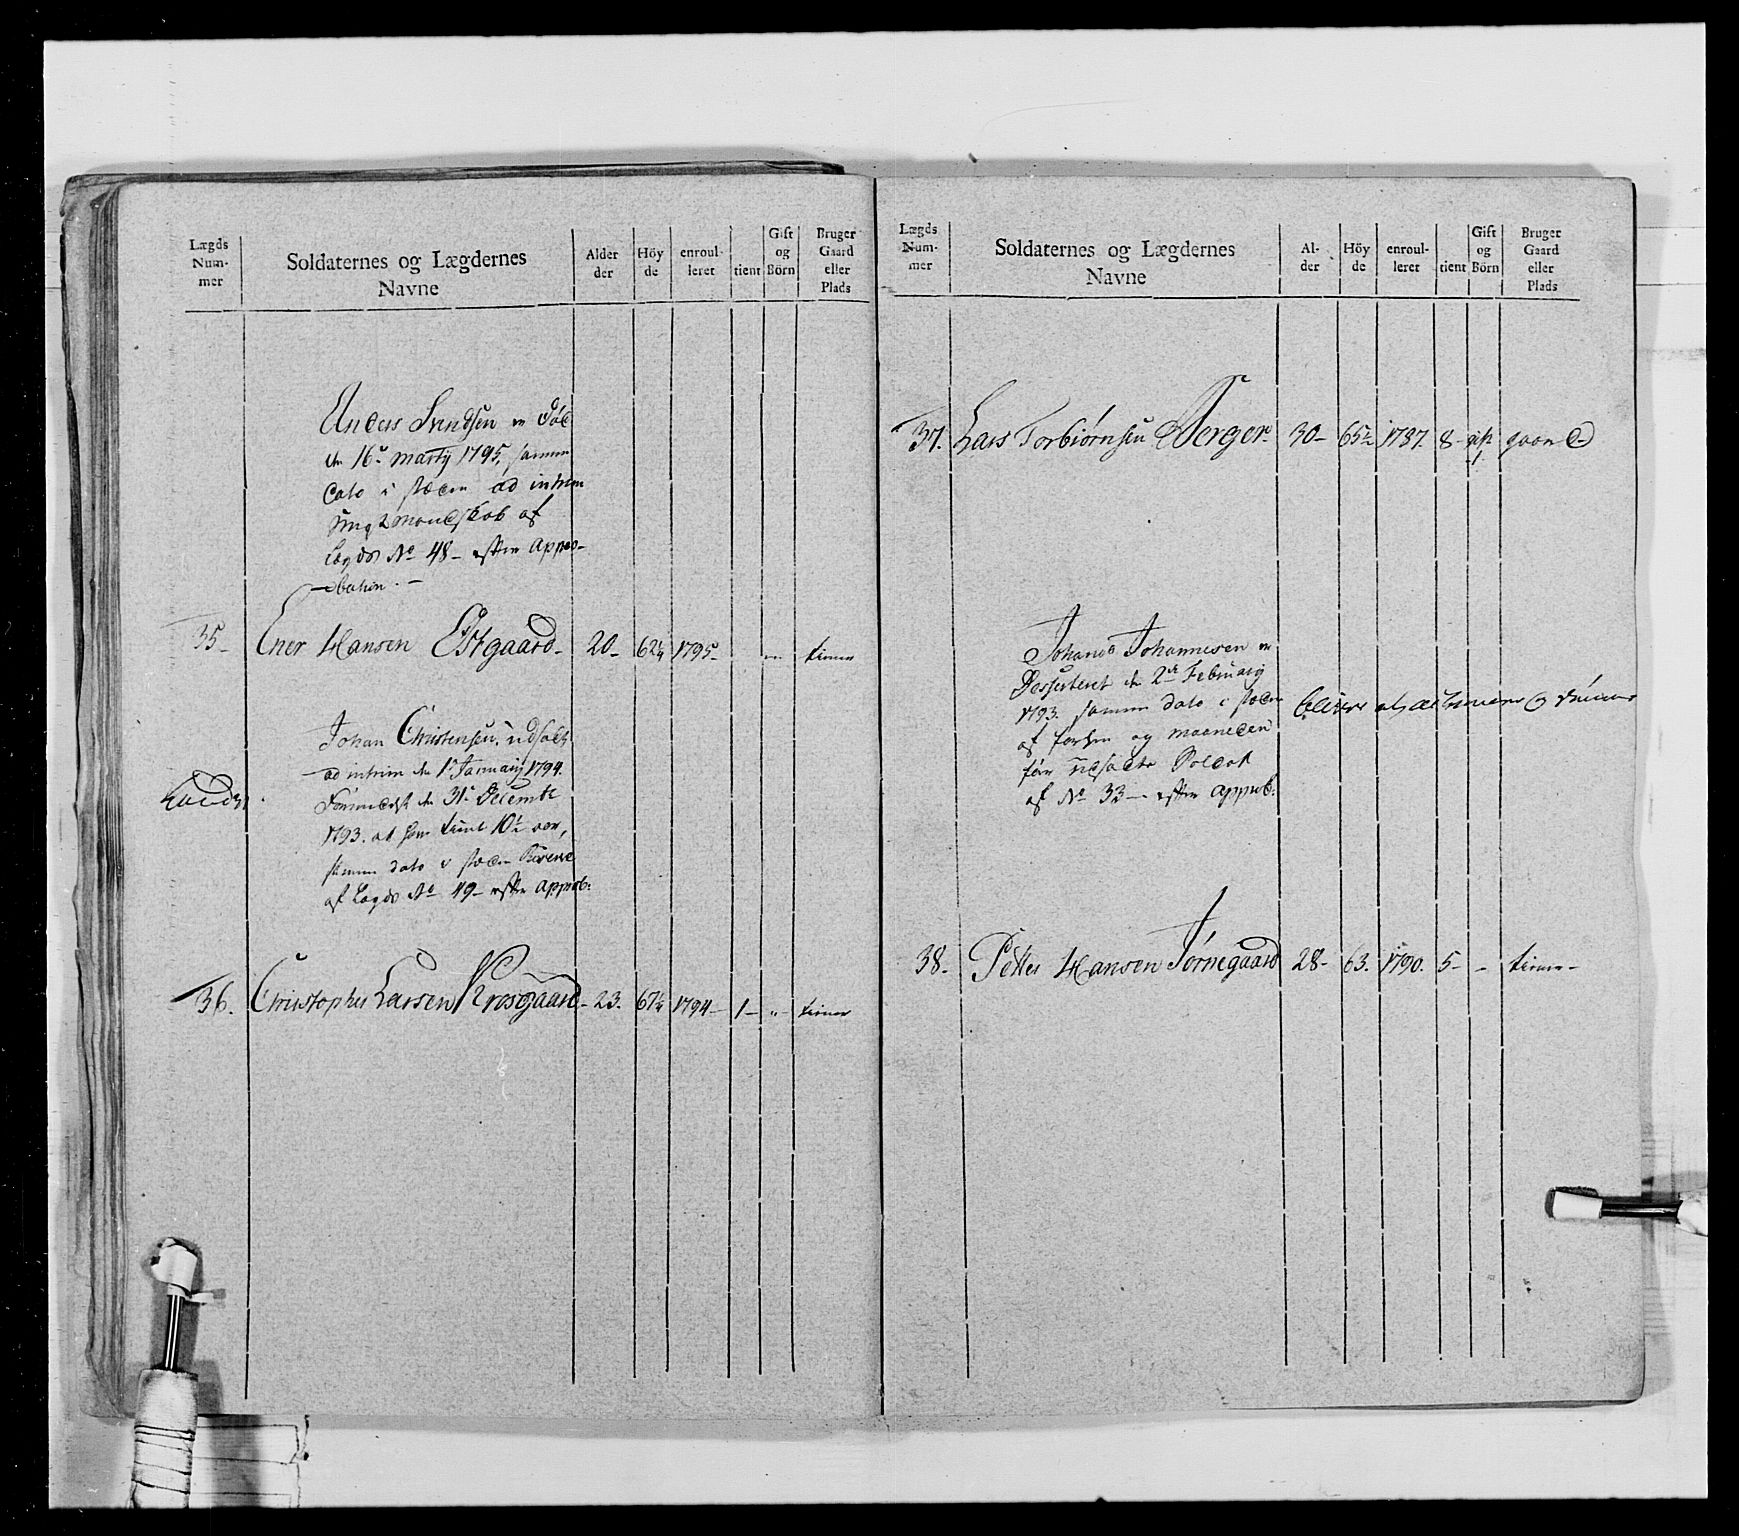 Lægds Num- mer
Soldaternes og Lægdernes Navne
Alder der
Höy de
enroul- leret
tient
Gift og Börn
Bruger Gaard eller Plads
Anders Svendsen er Död
den 16de Marty 1795, samme
dato i stæden ad intrim
ungt mandskab af
Lægds No 48 - efter Appro-
bation. -
35 - Ener Hansen Østgaard - 20 - 62¼ 1795 - " tiener
Johan Christensen, udsadt
ad intrim den 1te January 1794.
den 31te Decembr
1793. at have tient 10½ aar,
samme dato i stæden
af Lægds No 49 - efter Approb:
36. Christopher Larsen Krosgaard - 23. 67¼ 1794 - 1 - " - tiener
Lægds Num- mer
Soldaternes og Lægdernes Navne
Al- der
Höy de
enroul- leret
tient
Gift og Börn
Bruger Gaard eller Plads
37. Lars Torbiørnsen Berger - 30 - 65½ 1787. 8 - gift 1 gaard
Johanes Johannesen er
Desserteret den 2de February
1793. samme dato i stæden
af forhen og
før udsadte Soldat
af No 33 - efter Approb:
38. Petter Hansen Tørnegaard 28 - 63. 1790. 5 - - tiener -